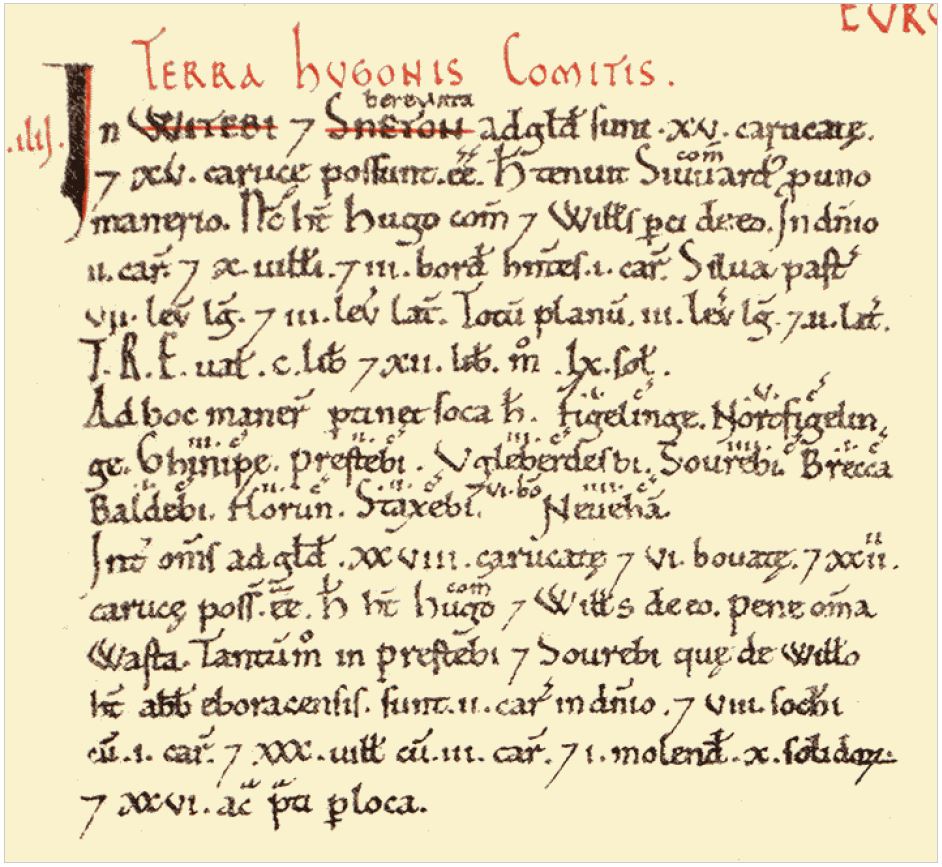 EVRO
TERRA hVGONIS COMITIS.
.IIII. In WITEBI 7 SNETON berewita ad gld̄ sunt .xv. carucatę.
7 xv. caruce possunt .ēē. H̄ tenuit Siuuard com̄ p uno
manerio. Nc̄ ht̄ hugo com̄ 7 Wills p̄ci de eo. In dn̄io
.ii. car̄. 7 x. uilli. 7 iii. bord̄ hn̄tes .i. car̄. Silua past̄
vii. lev̄ lḡ. 7 iii. lev̄ lat̄. Totū planū. iii. lev̄ lḡ. 7 .ii. lat̄.
T.R.E. uał. c. lib̄ 7 xii. lib̄. m̊ .lx. soł.
Ad hoc maner̄ ptinet soca h̄. Figelinge. Nortfigelin
v. c̄
ge. Ghinipe. Prestebi. Ugleberdesbi. Sourebi. Brecca
iii. c̄ ii. c̄ iii. c̄ iiii. c̄
Baldebi. Florun. Staxebi. Neueha̅.
i. c̄ ii. c̄ 7 vi. bo
Int̄ om̄s ad gld̄ .xxviii. carucatę 7 vi. bouatę. 7 xxii.
carucę poss̄ .ēē. H̄ ht̄ hugo com̄ 7 Wills de eo. Pene om̄a
Wasta. Tantū m̊ in prestebi 7 Sourebi quę de Willo
ht̄ abb̄ eboracensis. sunt .ii. car̄ in dn̄io. 7 viii. sochi
cū .i. car̄. 7 xxx. uilł cū .iii. car̄. 7 i. molend̄ .x. solidoꝝ.
7 xxvi. ac̄ p̄ti p loca.